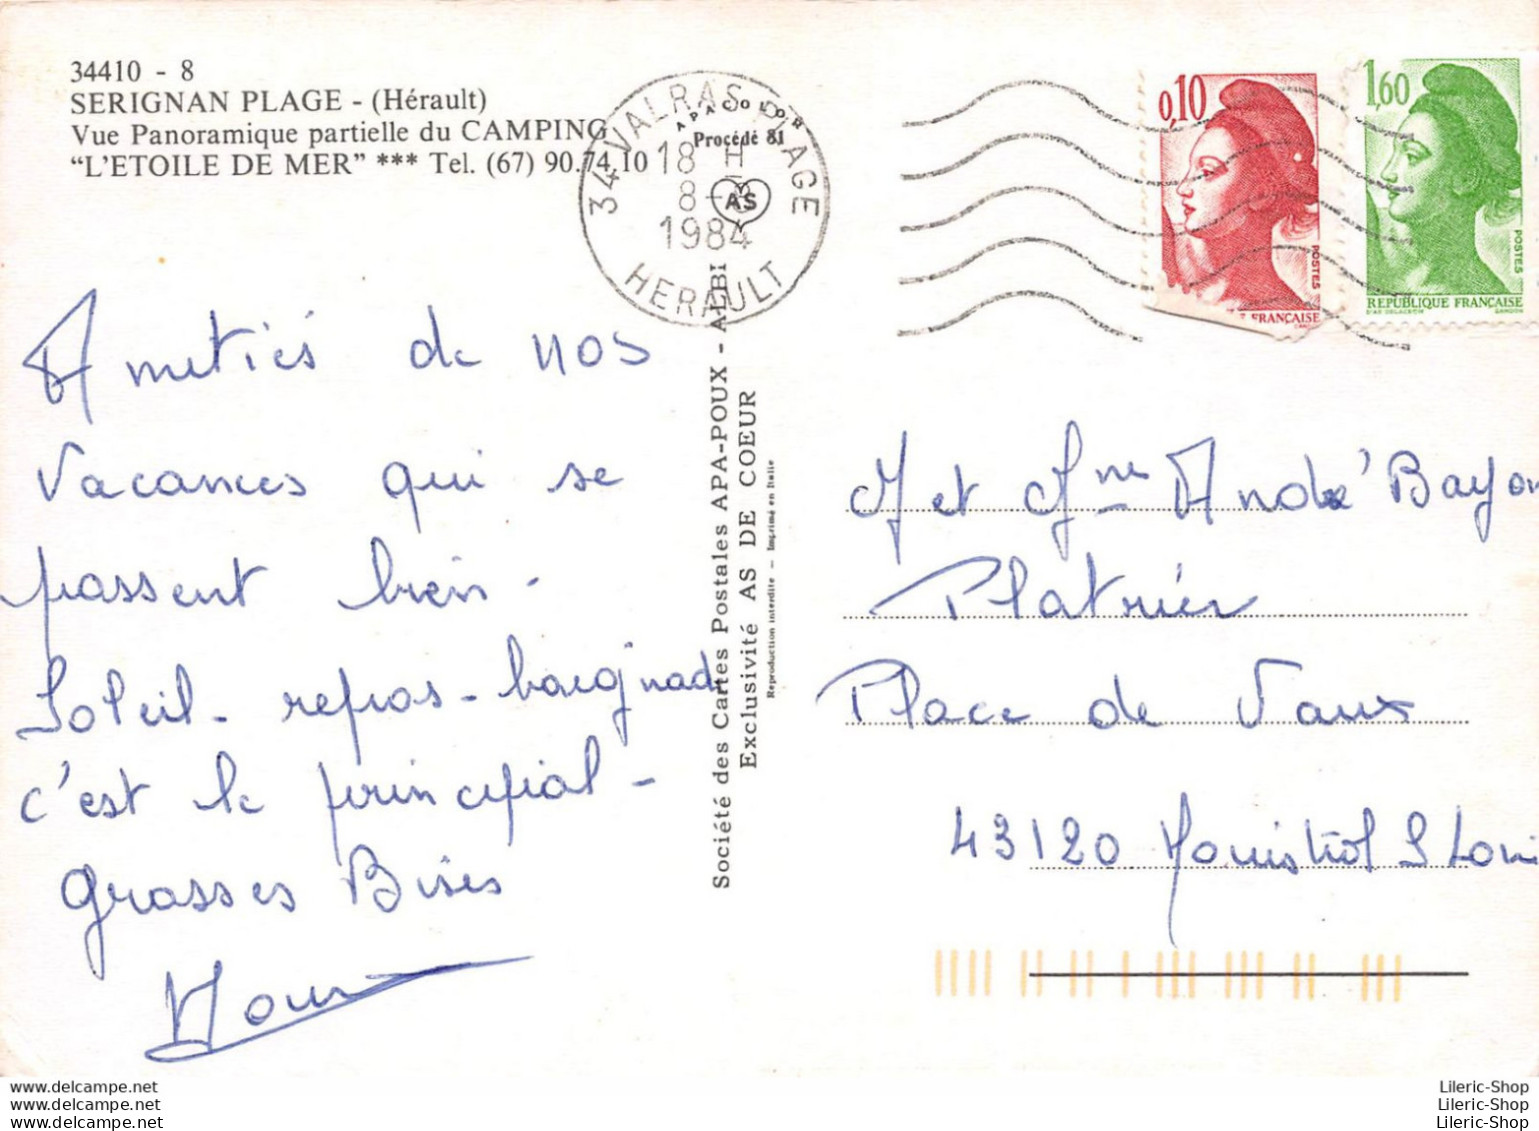 34410 - 8
SERIGNAN PLAGE - (Hérault)
Vue Panoramique partielle du CAMPING
"L'ETOILE DE MER" *** Tel. (67) 90.74.10
34 VALRAS PLAGE
18 H
8-
1984
HERAULT
APA COLOR
Procédé 81
AS
0,10
FRANÇAISE
POSTES
1,60
POSTES
REPUBLIQUE FRANÇAISE
D'AP. DELACROIX GANDON
Amitiés de nos
vacances qui se
passent bien -
Soleil - repos - baignad
c'est le principal -
grosses Bises
Société des Cartes Postales APA-POUX - ALBI
Exclusivité AS DE COEUR
Reproduction interdite - Imprimé en Italie
M et Mme André Bayon
Platrier
Place de Vaux
43120 Monistrol S Loi
www.delcampe.net
www.delcampe.net
www.delcampe.net
Lileric-Shop
Lileric-Shop
Lileric-Shop